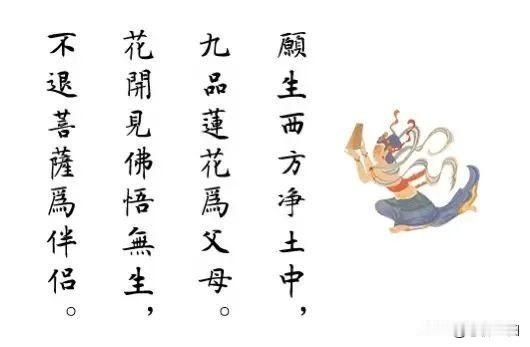 願生西方净土中，
九品蓮花爲父母。
花開見佛悟無生，
不退菩薩爲伴侣。